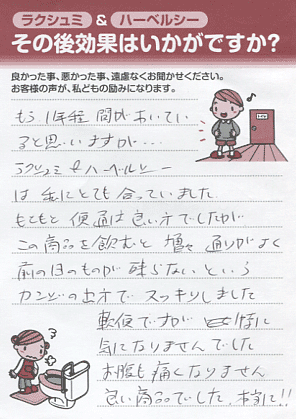 ラクシュミ & ハーベルシー
その後効果はいかがですか?
良かった事、悪かった事、遠慮なくお聞かせください。
お客様の声が、私どもの励みになります。
もう1年程 間があいてい
ると思いますが…
ラクシュミ&ハーベルシー
は 私にとても 合っていました
もともと 便通は良い方でしたが
この商品を飲むと 増々 通りがよく
前の日のものが 残らない という
カンジの出方で スッキリしました
軟便ですが 特に
気になりませんでした
お腹も 痛くなりません
良い商品でした 本当に!!